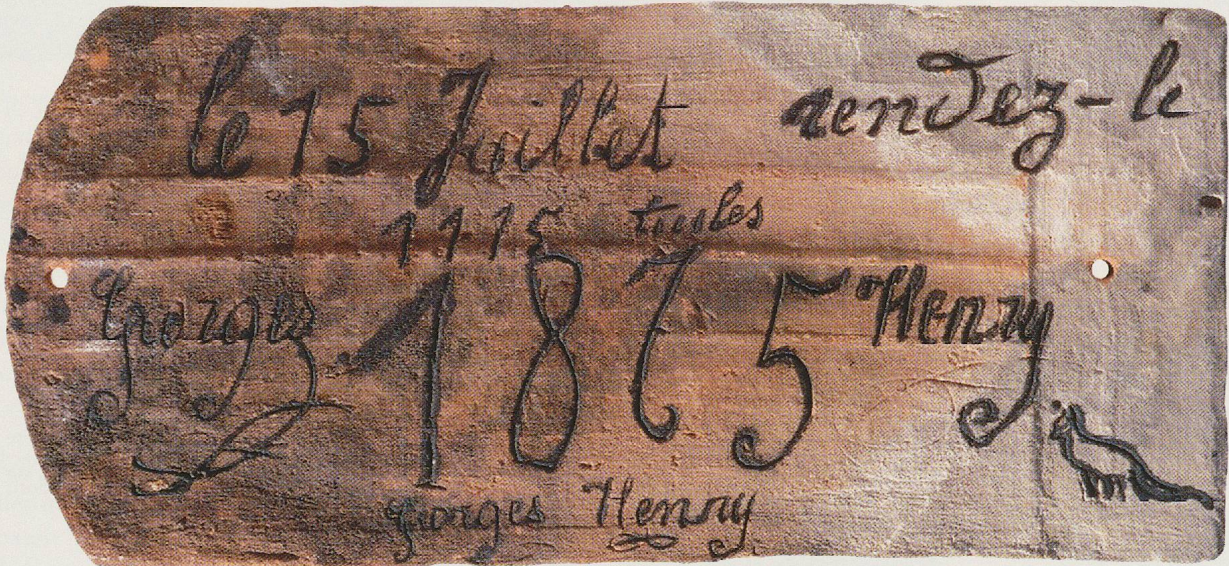 le 15 Juillet rendez-le
1115 tuiles
Georges 1865 Henry
Georges Henry